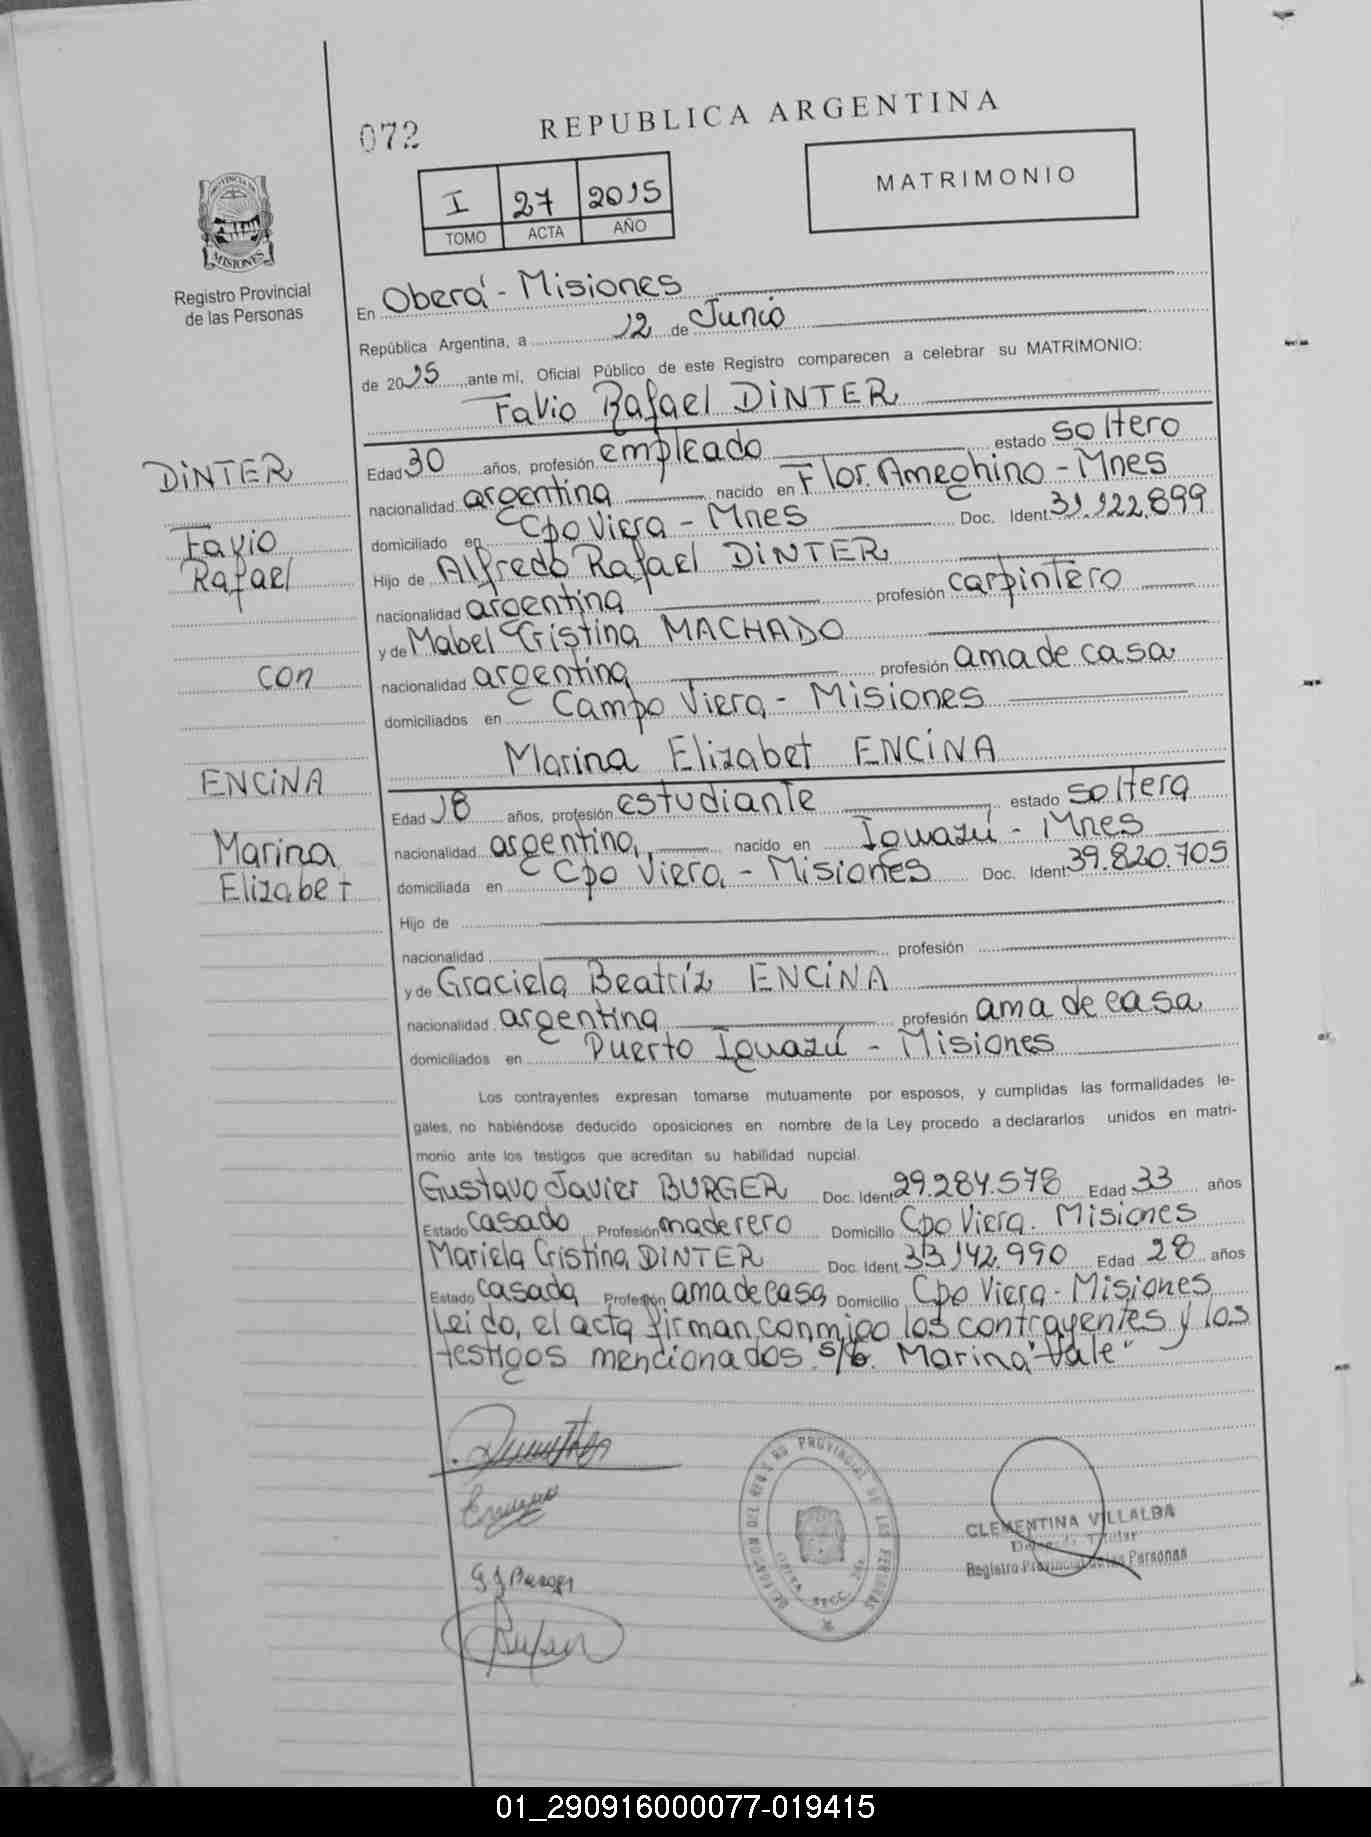 072
REPUBLICA ARGENTINA
I 27 2015
TOMO ACTA AÑO
MATRIMONIO
PROVINCIA DE
MISIONES
Registro Provincial
de las Personas
En Oberá - Misiones
República Argentina, a 12 de Junio
de 2015 ante mí, Oficial Público de este Registro comparecen a celebrar su MATRIMONIO:
Favio Rafael DINTER
Edad 30 años, profesión empleado estado soltero
nacionalidad argentina nacido en Flor. Ameghino - Mnes
domiciliado en Cpo Viera - Mnes Doc. Ident 31.122.899
Hijo de Alfredo Rafael DINTER
nacionalidad argentina profesión carpintero
y de Mabel Cristina MACHADO
nacionalidad argentina profesión ama de casa
domiciliados en Campo Viera - Misiones
DINTER
Favio
Rafael
con
ENCINA
Marina
Elizabet
Marina Elizabet ENCINA
Edad 18 años, profesión estudiante estado soltera
nacionalidad argentina nacido en Iguazú - Mnes
domiciliada en Cpo Viera - Misiones Doc. Ident 39.820.705
Hijo de
nacionalidad profesión
y de Graciela Beatríz ENCINA
nacionalidad argentina profesión ama de casa
domiciliados en Puerto Iguazú - Misiones
Los contrayentes expresan tomarse mutuamente por esposos, y cumplidas las formalidades le-
gales, no habiéndose deducido oposiciones en nombre de la Ley procedo a declararlos unidos en matri-
monio ante los testigos que acreditan su habilidad nupcial.
Gustavo Javier BURGER Doc. Ident 29.284.578 Edad 33 años
Estado casado Profesión maderero Domicilio Cpo Viera. Misiones
Mariela Cristina DINTER Doc. Ident. 33.142.990 Edad 28 años
Estado casada Profesión ama de casa Domicilio Cpo Viera - Misiones
Leido, el acta firman conmigo los contrayentes y los
testigos mencionados. s/b. Marina "Vale"
PROVINCIAL DE LAS PERSONAS
CLEMENTINA VILLALBA
Titular
Registro Provincial de las Personas
01_290916000077-019415